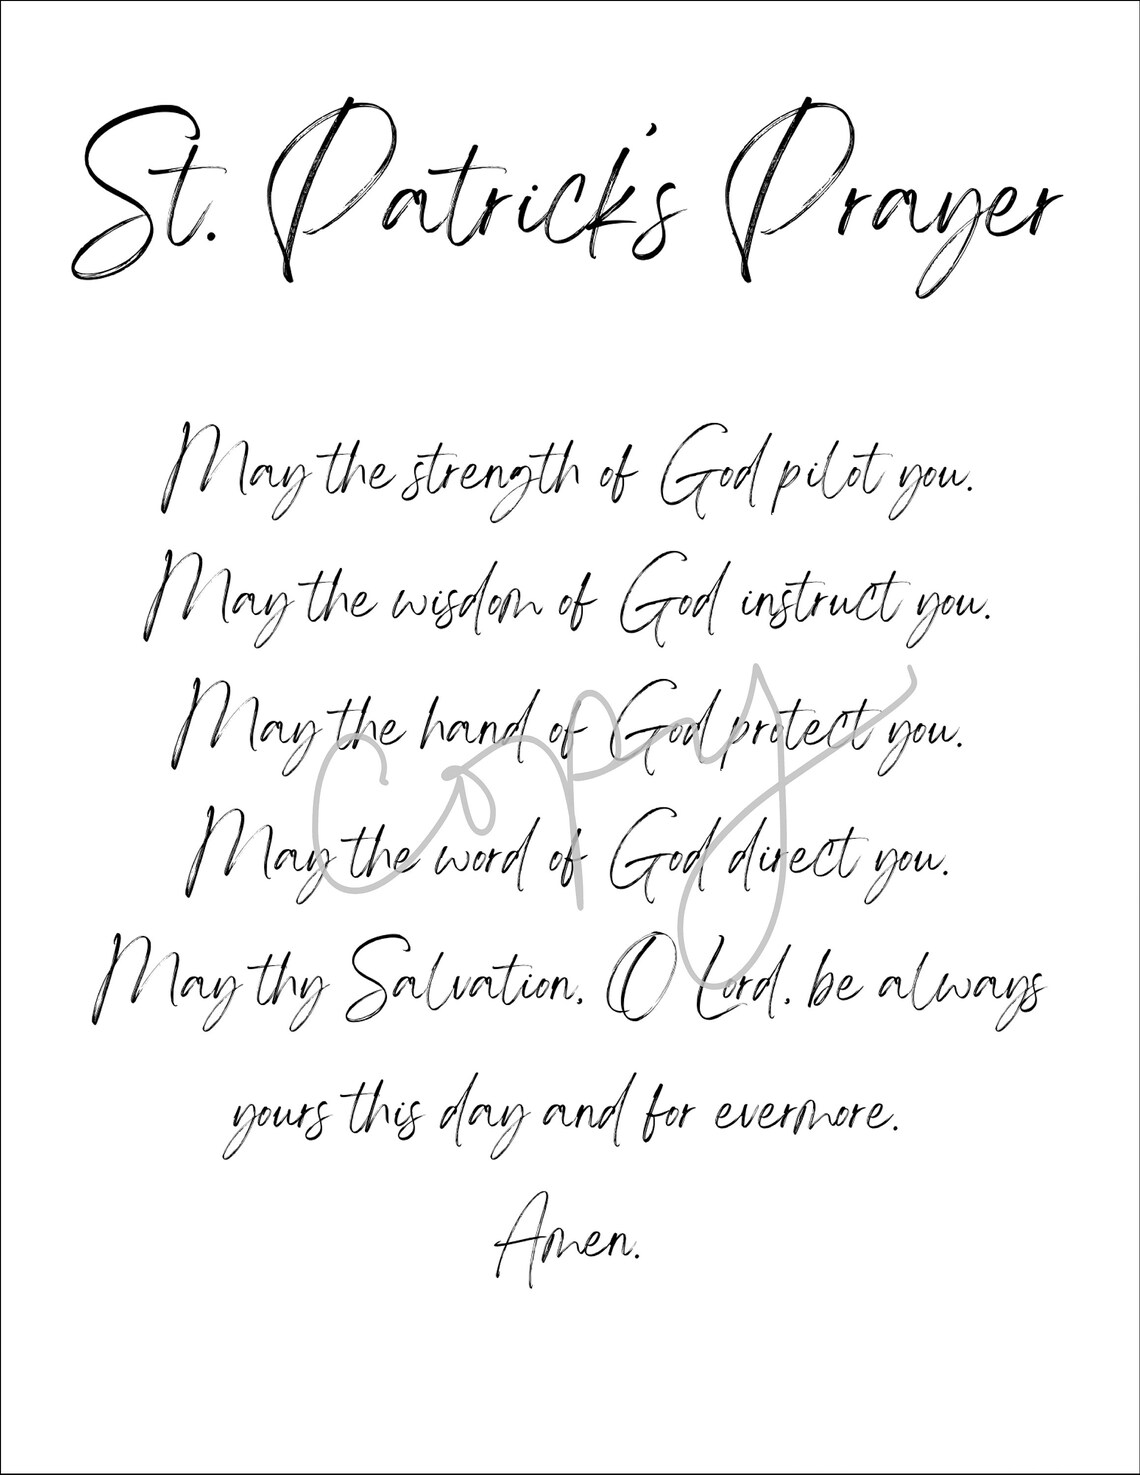 St. Patrick's Prayer
May the strength of God pilot you.
May the wisdom of God instruct you.
May the hand of God protect you.
copy
May the word of God direct you.
May thy Salvation, O Lord, be always
yours this day and for evermore.
Amen.